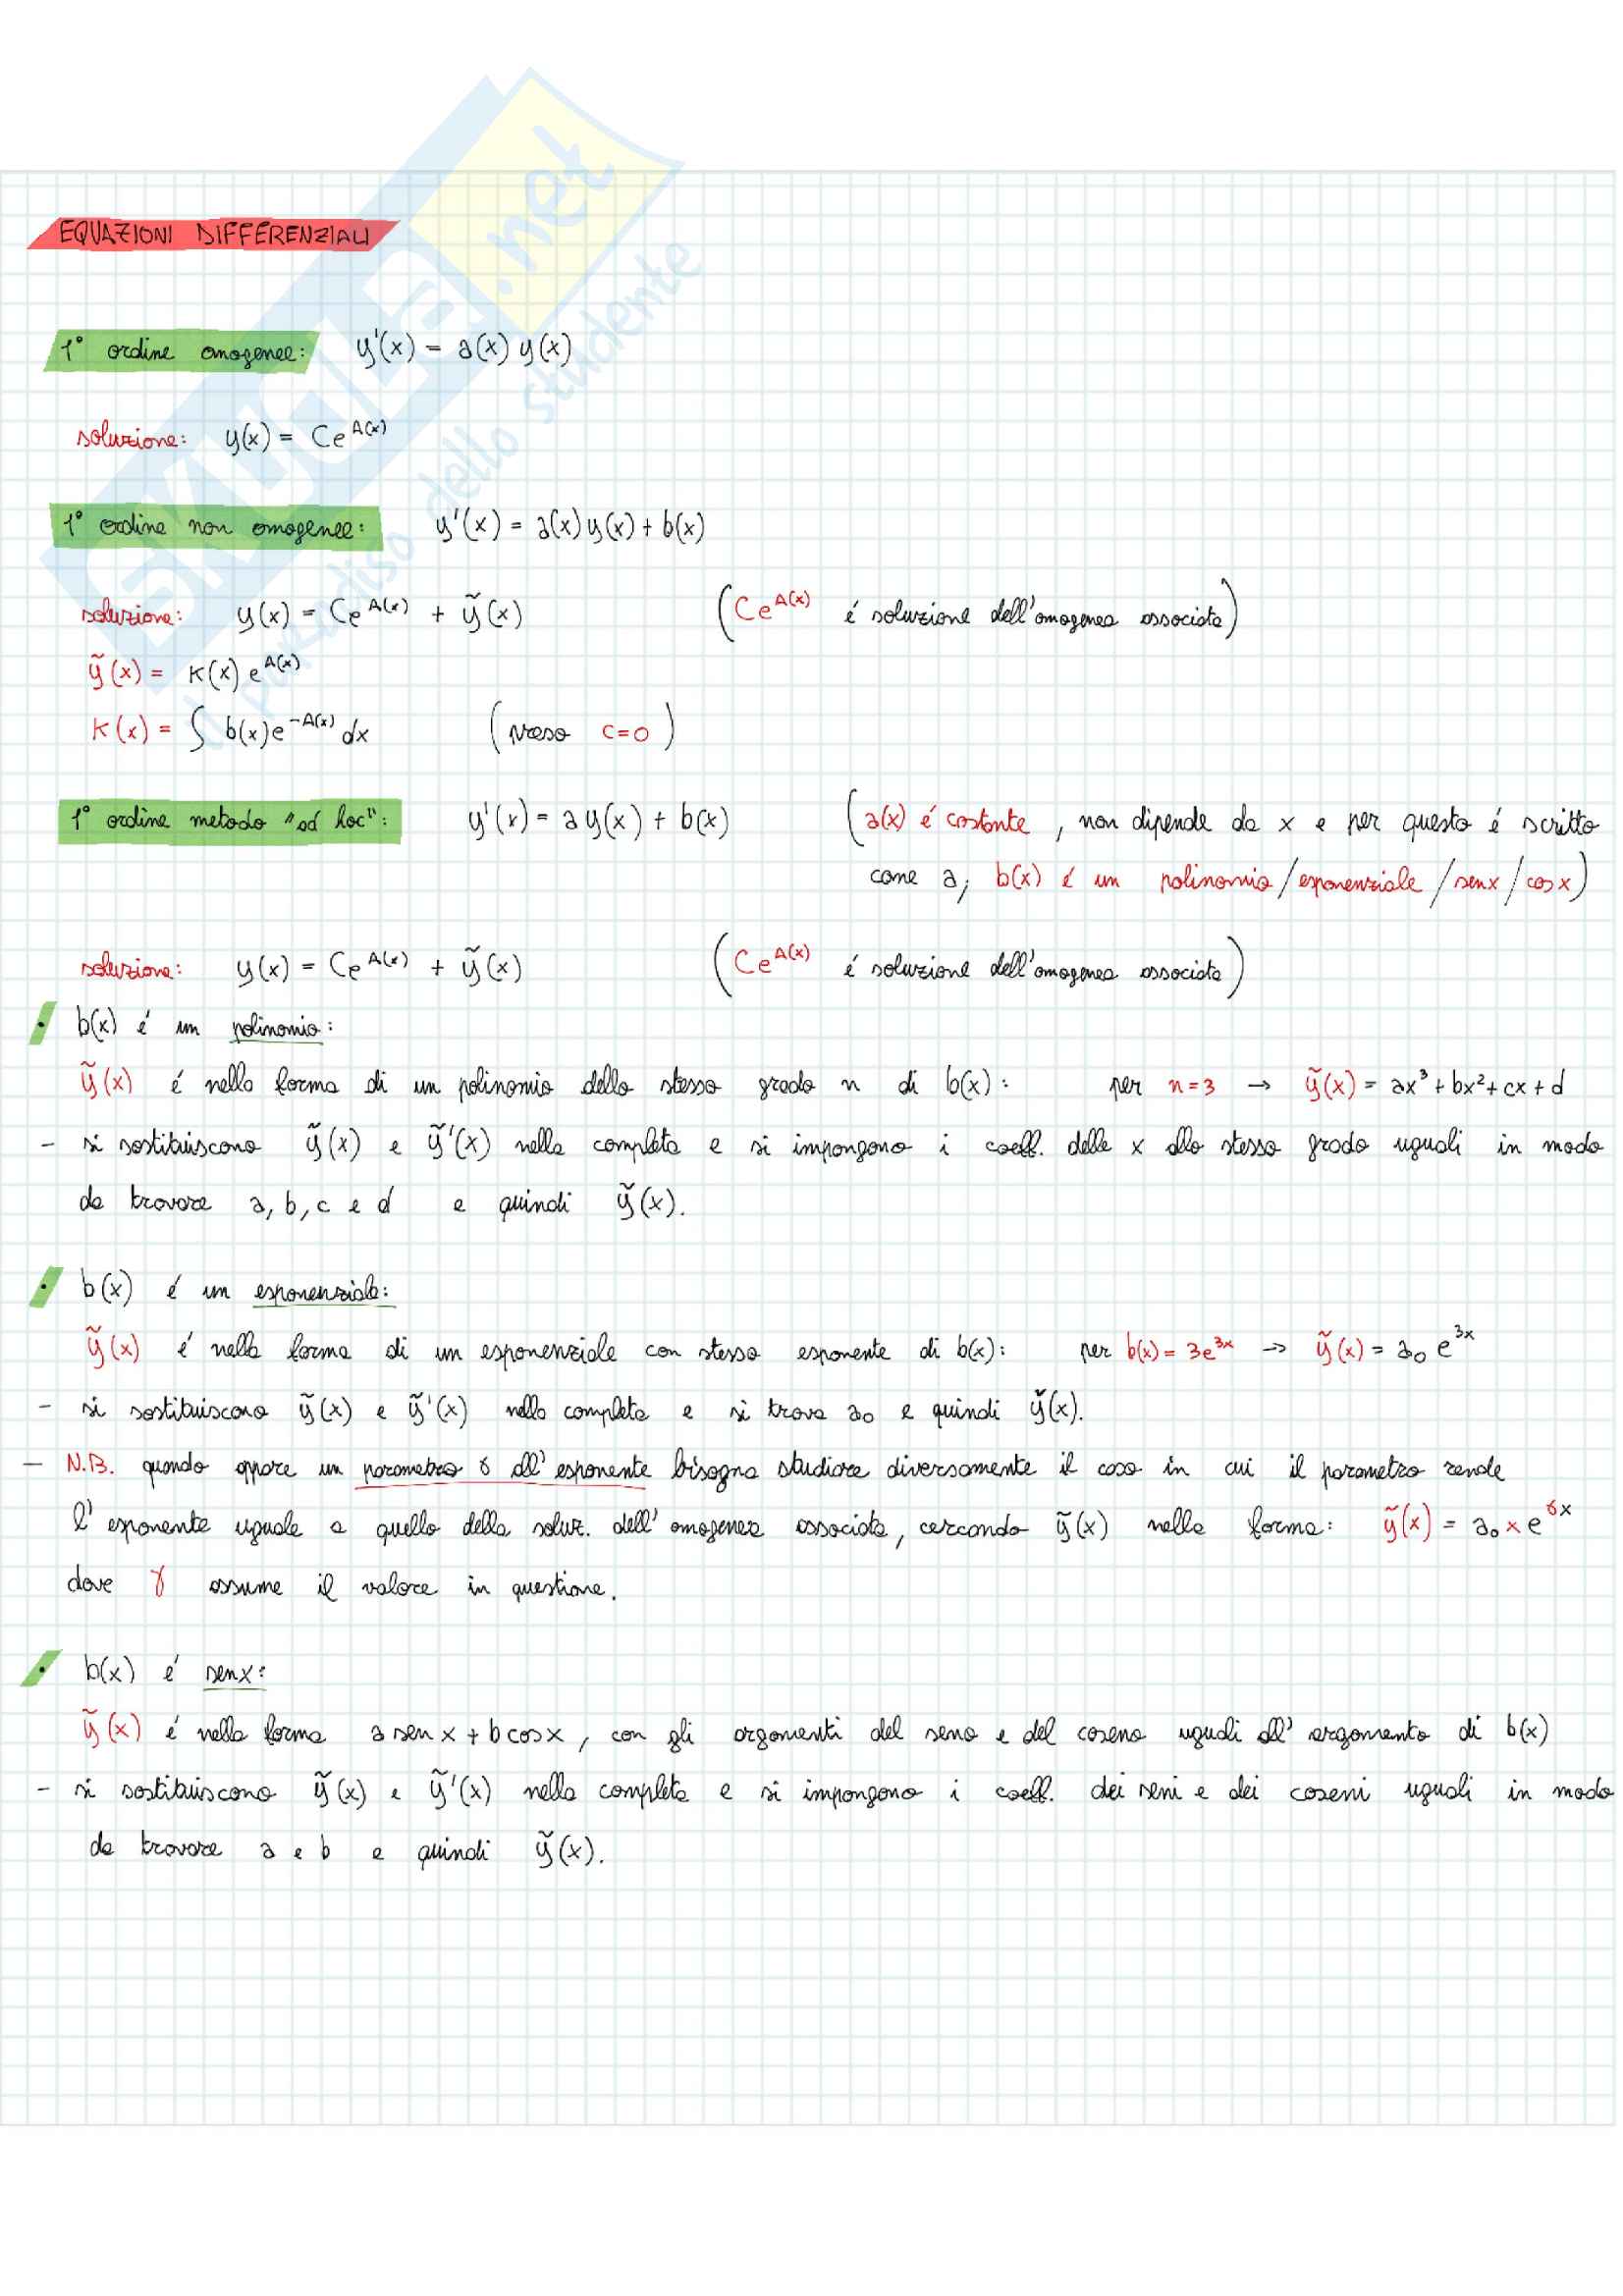 SKUOLA.net
il paradiso dello studente
EQUAZIONI DIFFERENZIALI
1° ordine omogenee: y'(x) = a(x) y(x)
soluzione: y(x) = Ce^A(x)
1° ordine non omogenee: y'(x) = a(x) y(x) + b(x)
soluzione: y(x) = Ce^A(x) + ỹ(x) (Ce^A(x) é soluzione dell'omogenea associata)
ỹ(x) = K(x) e^A(x)
K(x) = ∫ b(x)e^-A(x) dx (preso c=0)
1° ordine metodo "ad hoc": y'(x) = a y(x) + b(x) (a(x) é costante, non dipende da x e per questo é scritto
come a; b(x) é un polinomio/esponenziale/senx/cosx)
soluzione: y(x) = Ce^A(x) + ỹ(x) (Ce^A(x) é soluzione dell'omogenea associata)
• b(x) é un polinomio:
ỹ(x) é nella forma di un polinomio dello stesso grado n di b(x): per n=3 → ỹ(x) = ax³ + bx² + cx + d
- si sostituiscono ỹ(x) e ỹ'(x) nella completa e si impongono i coeff. delle x allo stesso grado uguali in modo
da trovare a, b, c e d e quindi ỹ(x).
• b(x) é un esponenziale:
ỹ(x) é nella forma di un esponenziale con stesso esponente di b(x): per b(x) = 3e^3x → ỹ(x) = a₀ e^3x
- si sostituiscono ỹ(x) e ỹ'(x) nella completa e si trova a₀ e quindi ỹ(x).
- N.B. quando appare un parametro γ all'esponente bisogna studiare diversamente il caso in cui il parametro rende
l'esponente uguale a quello della soluz. dell'omogenea associata, cercando ỹ(x) nella forma: ỹ(x) = a₀ x e^γx
dove γ assume il valore in questione.
• b(x) é senx:
ỹ(x) é nella forma a sen x + b cos x, con gli argomenti del seno e del coseno uguali all'argomento di b(x)
- si sostituiscono ỹ(x) e ỹ'(x) nella completa e si impongono i coeff. dei seni e dei coseni uguali in modo
da trovare a e b e quindi ỹ(x).